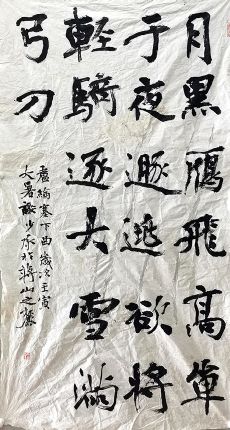 月黑鴈飛高單
于夜遯逃欲將
輕騎逐大雪滿
弓刀
盧綸塞下曲歲次壬寅
大暑少承於蔣山之麓